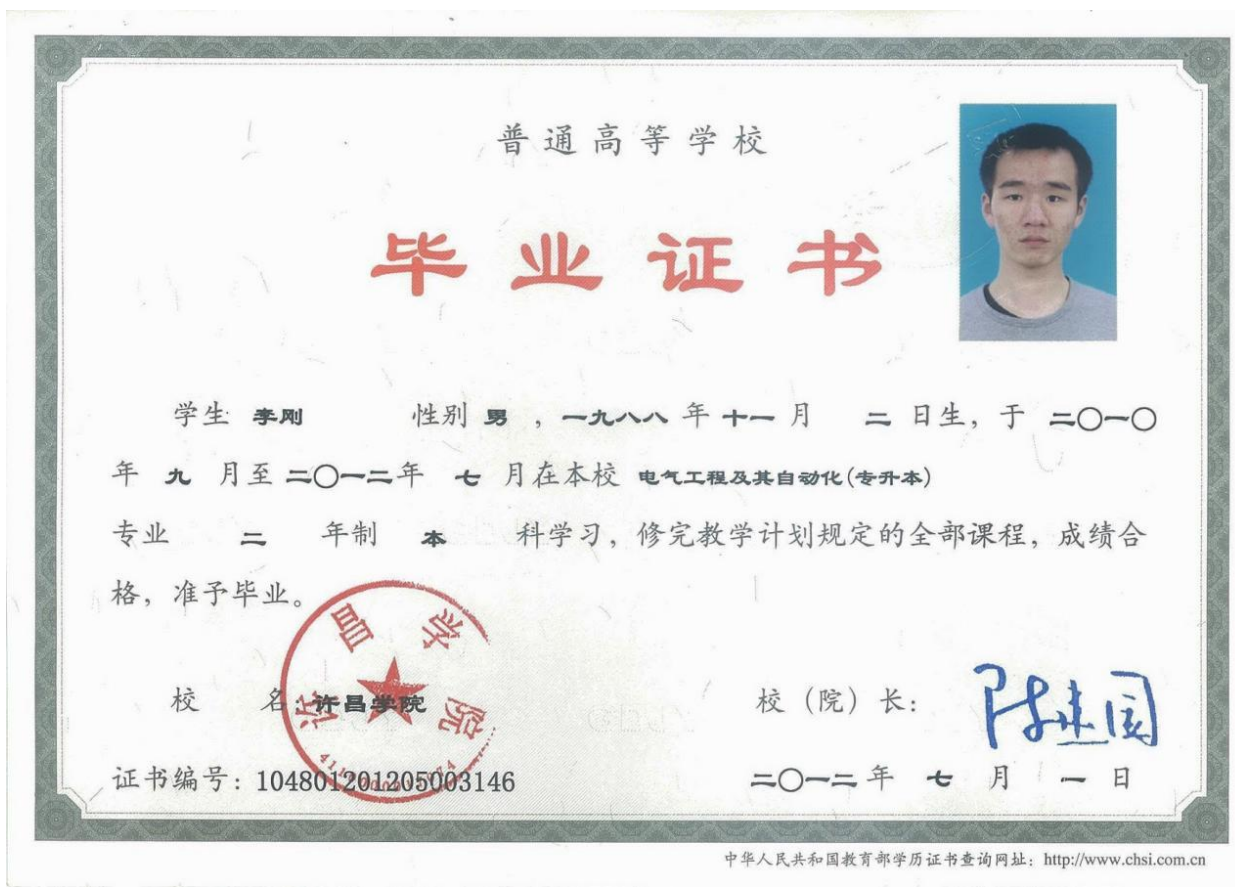 普通高等学校
毕业证书
学生 李刚 性别 男 ，一九八八 年 十一 月 二 日生，于 二〇一〇
年 九 月至 二〇一二 年 七 月在本校 电气工程及其自动化(专升本)
专业 二 年制 本 科学习，修完教学计划规定的全部课程，成绩合
格，准予毕业。
许昌学院
校 名：许昌学院 校（院）长：
证书编号：104801201205003146 二〇一二 年 七 月 一 日
中华人民共和国教育部学历证书查询网址：http://www.chsi.com.cn